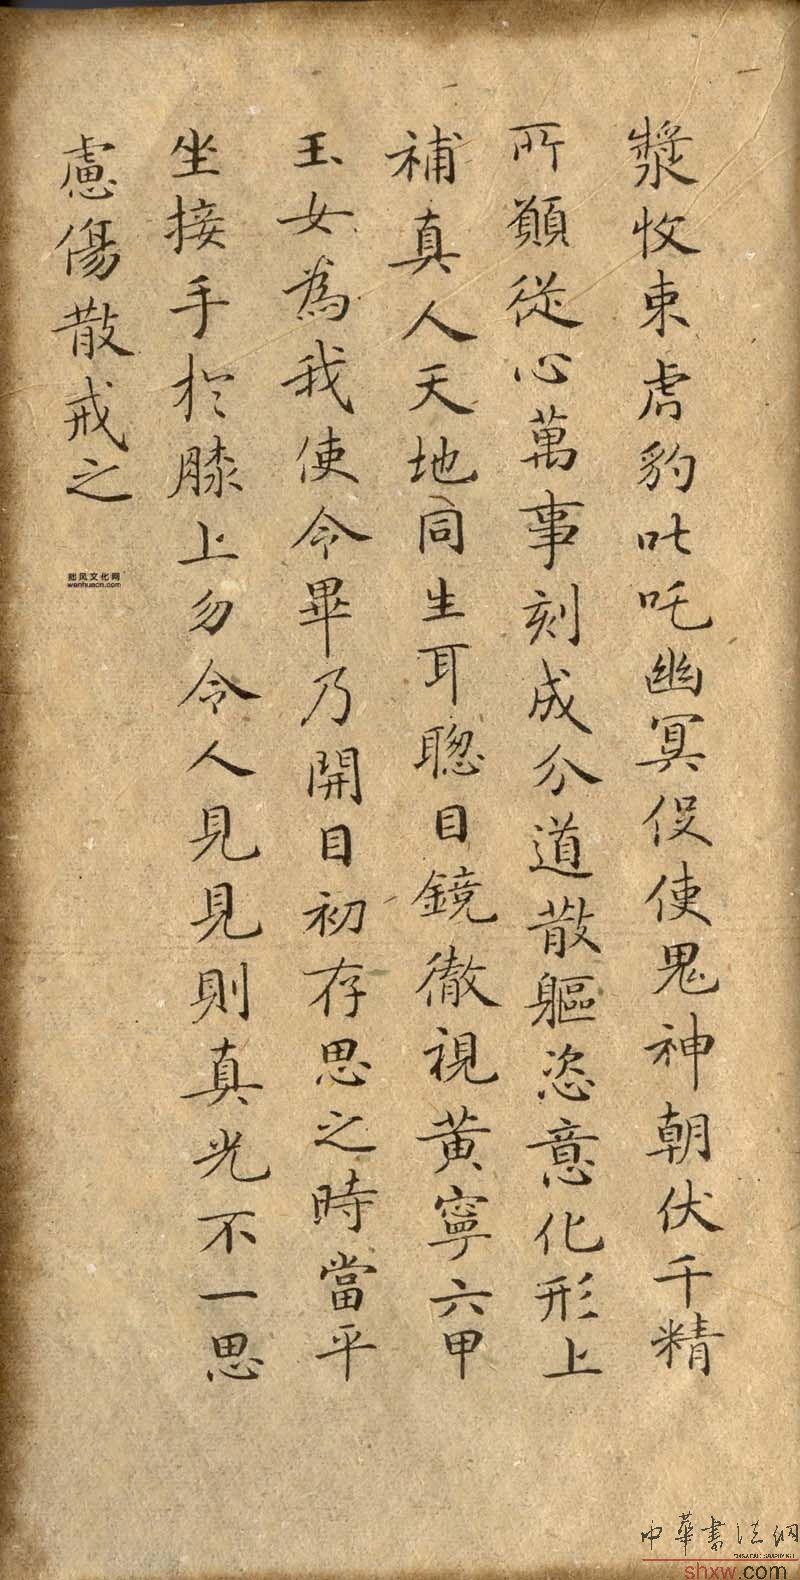 漿收束虎豹叱吒幽冥役使鬼神朝伏千精
所願從心萬事刻成分道散軀恣意化形上
補真人天地同生耳聰目鏡徹視黃寧六甲
玉女為我使令畢乃開目初存思之時當平
坐接手於膝上勿令人見見則真光不一思
慮傷散戒之
拙风文化网
wenhuacn.com
中華書法網
shxw.com